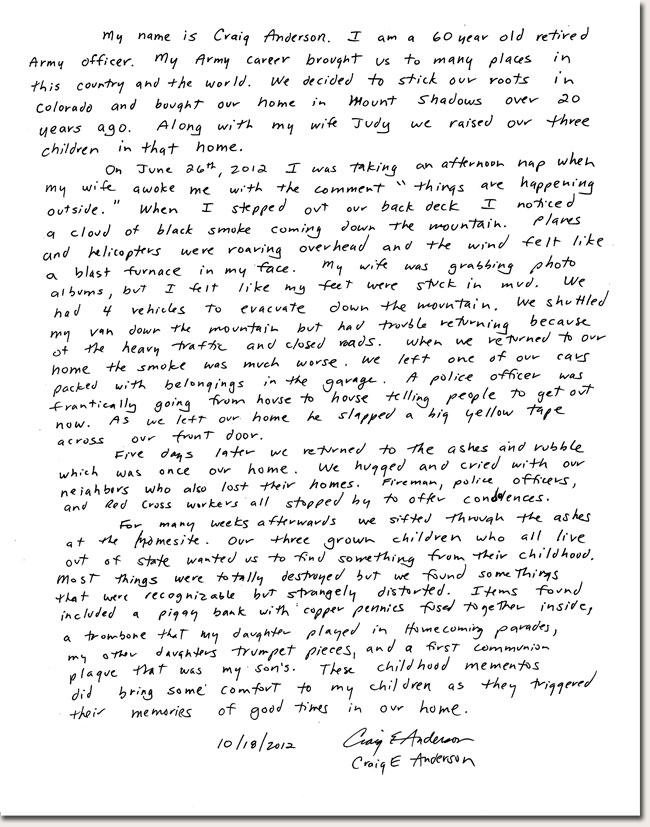 My name is Craig Anderson. I am a 60 year old retired
Army officer. My Army career brought us to many places in
this country and the world. We decided to stick our roots in
Colorado and bought our home in Mount Shadows over 20
years ago. Along with my wife Judy we raised our three
children in that home.
On June 26th, 2012 I was taking an afternoon nap when
my wife awoke me with the comment "things are happening
outside." When I stepped out our back deck I noticed
a cloud of black smoke coming down the mountain. Planes
and helicopters were roaring overhead and the wind felt like
a blast furnace in my face. My wife was grabbing photo
albums, but I felt like my feet were stuck in mud. We
had 4 vehicles to evacuate down the mountain. We shuttled
my van down the mountain but had trouble returning because
of the heavy traffic and closed roads. When we returned to our
home the smoke was much worse. We left one of our cars
packed with belongings in the garage. A police officer was
frantically going from house to house telling people to get out
now. As we left our home he slapped a big yellow tape
across our front door.
Five days later we returned to the ashes and rubble
which was once our home. We hugged and cried with our
neighbors who also lost their homes. Fireman, police officers,
and Red Cross workers all stopped by to offer condolences.
For many weeks afterwards we sifted through the ashes
at the homesite. Our three grown children who all live
out of state wanted us to find something from their childhood.
Most things were totally destroyed but we found some things
that were recognizable but strangely distorted. Items found
included a piggy bank with copper pennies fused together inside,
a trombone that my daughter played in Homecoming parades,
my other daughters trumpet pieces, and a first communion
plaque that was my son's. These childhood mementos
did bring some comfort to my children as they triggered
their memories of good times in our home.
10/18/2012 Craig E Anderson
Craig E Anderson